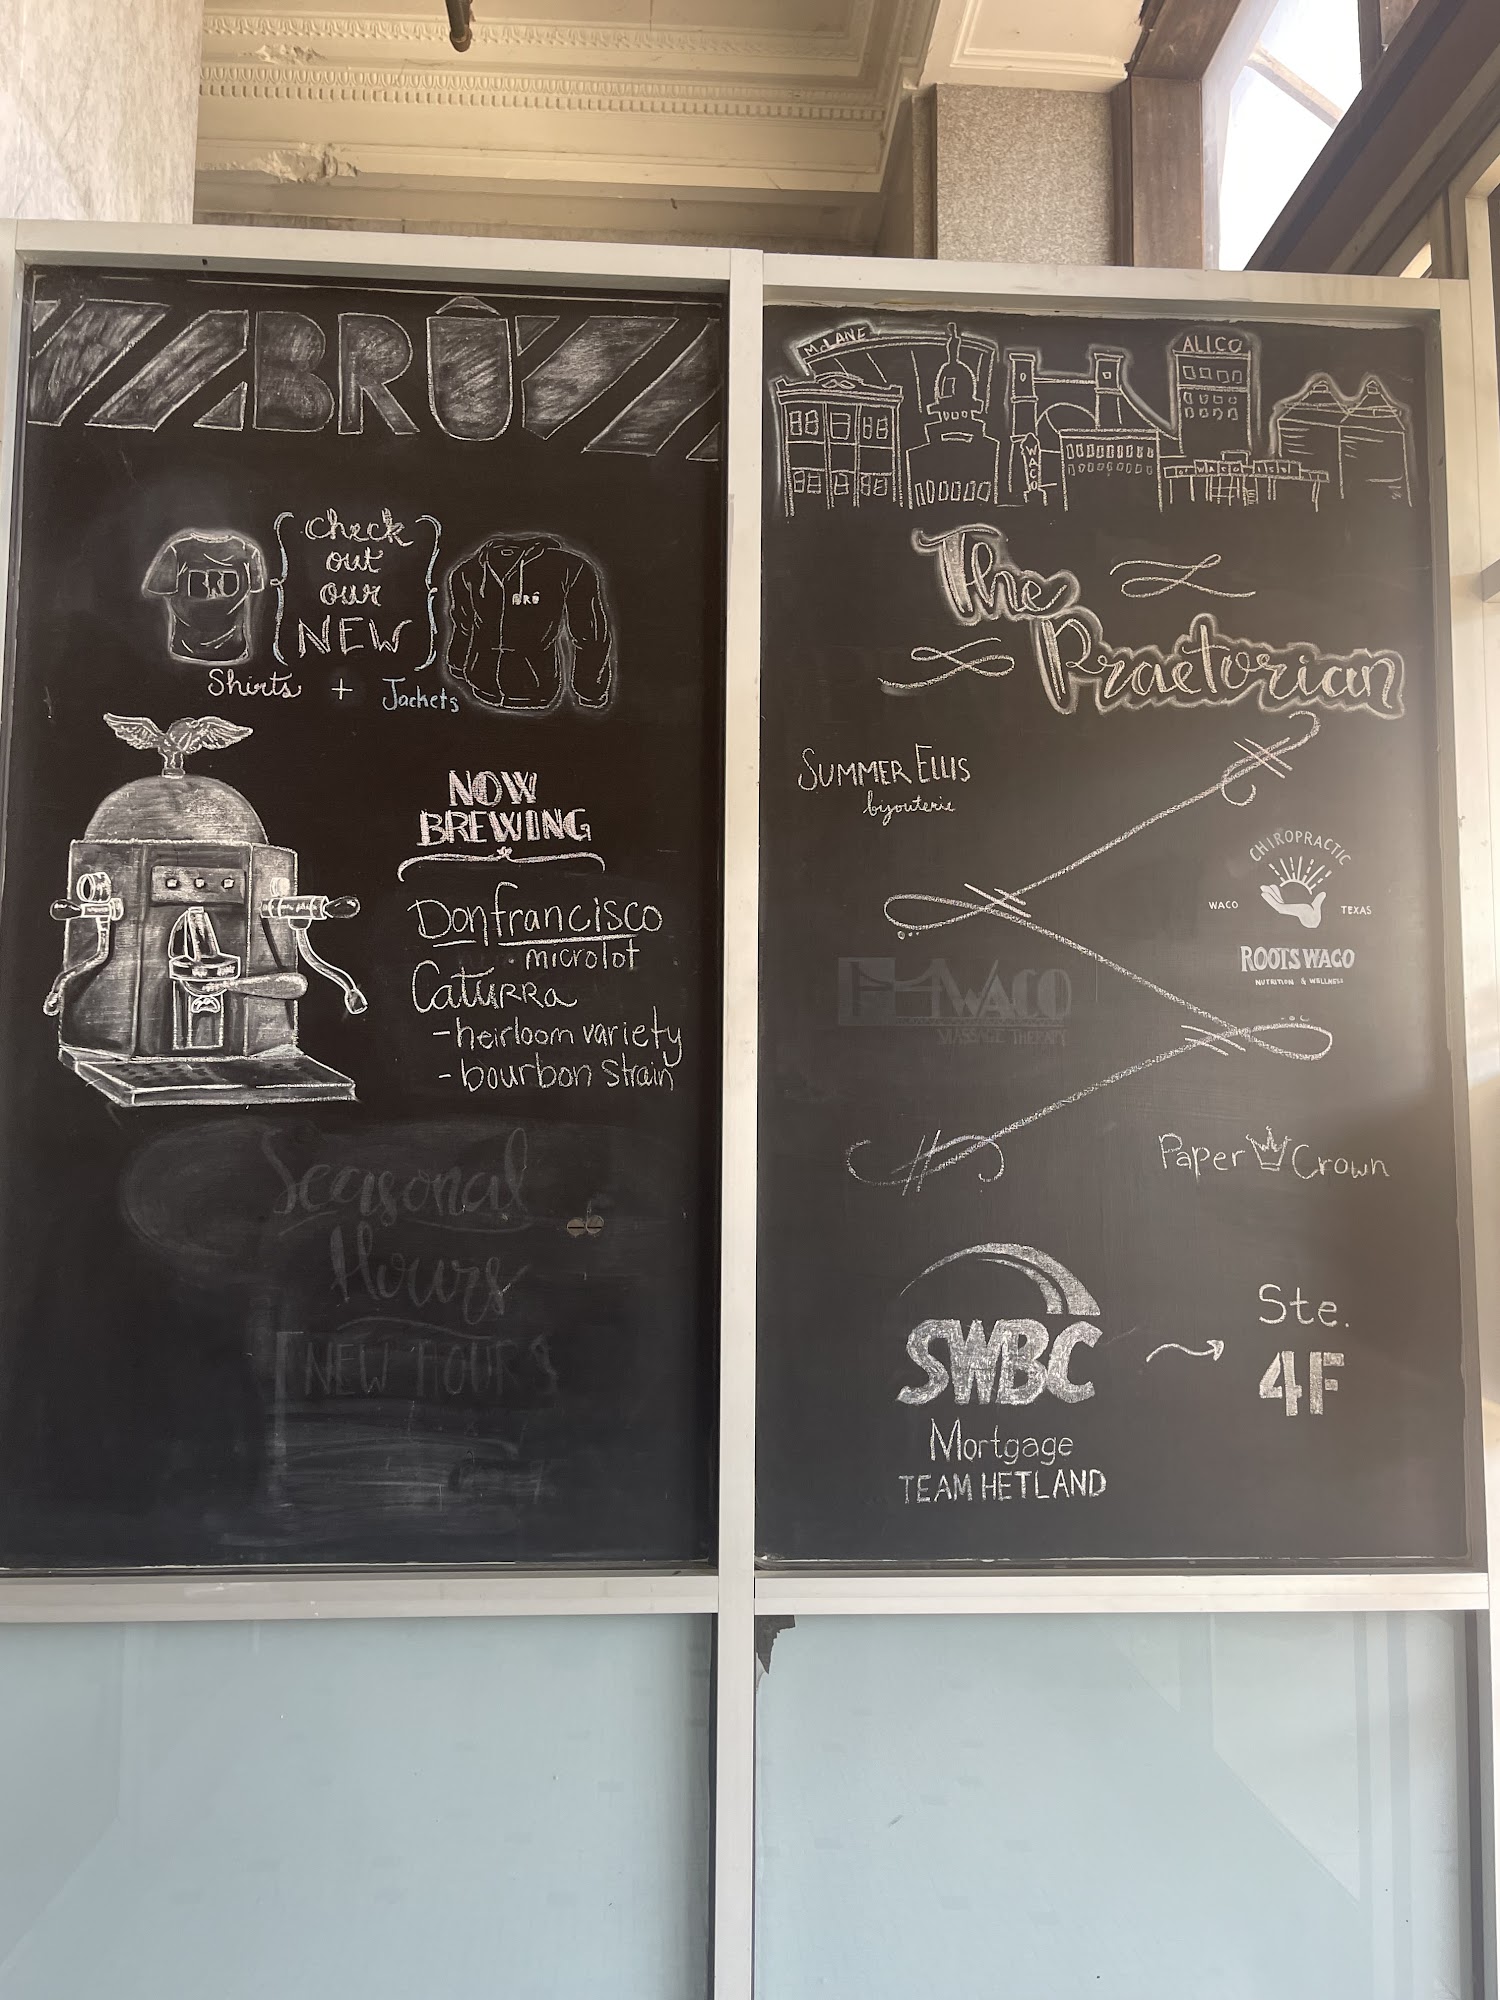 BRÛ
BRÛ
Check
out
our
NEW
BRÛ
Shirts + Jackets
NOW
BREWING
Donfrancisco
microlot
Caturra
-heirloom variety
-bourbon strain
Seasonal
Hours
NEW HOURS
McLANE
ALICO
WACO
The
Praetorian
SUMMER ELLIS
byouterie
CHIROPRACTIC
WACO TEXAS
ROOTS WACO
NUTRITION & WELLNESS
WACO
MASSAGE THERAPY
Paper Crown
SWBC
Mortgage
TEAM HETLAND
Ste.
4F